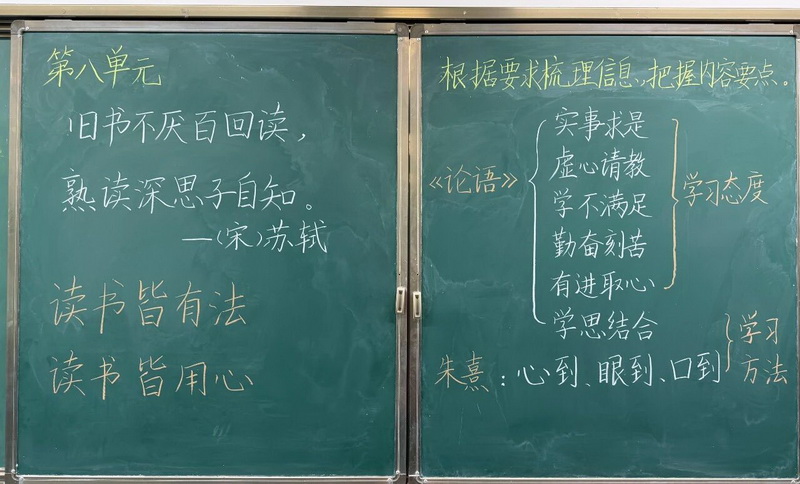 第八单元
旧书不厌百回读，
熟读深思子自知。
—（宋）苏轼
读书皆有法
读书皆用心
根据要求梳理信息，把握内容要点。
《论语》
实事求是
虚心请教
学不满足
勤奋刻苦
有进取心
学习态度
学思结合
朱熹：心到、眼到、口到
学习
方法